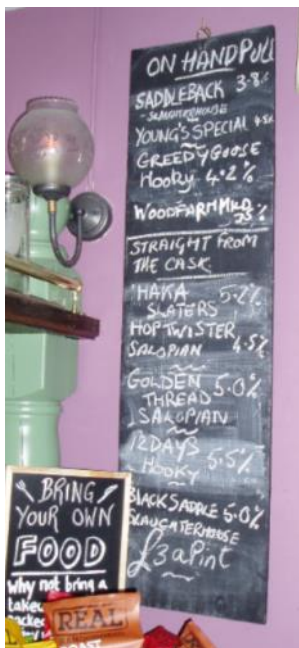 ON HANDPULL
SADDLEBACK 3.8%
- SLAUGHTERHOUSE
YOUNG'S SPECIAL 4.5%
GREEDY GOOSE
HOOKY 4.2%
WOODFARM MILD
3.5%
STRAIGHT FROM
THE CASK.
'HAKA 5.2%
SLATERS
HOP TWISTER
SALOPIAN 4.5%
GOLDEN 5.0%
THREAD
SALOPIAN
12 DAYS
HOOKY 5.5%
BLACK SADDLE 5.0%
SLAUGHTERHOUSE
£3 a Pint
BRING
YOUR OWN
FOOD
Why not bring a
REAL
ROAST